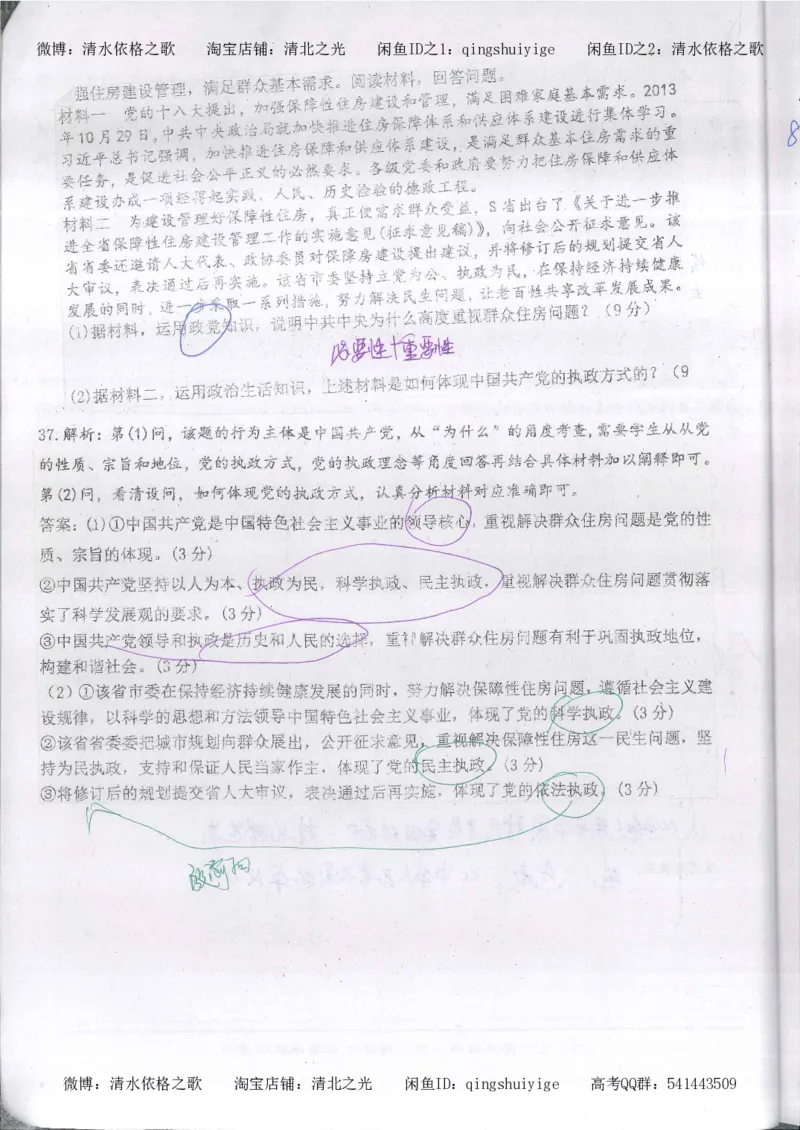 微博：清水依格之歌 淘宝店铺：清北之光 闲鱼ID之1：qingshuiyige 闲鱼ID之2：清水依格之歌
强住房建设管理，满足群众基本需求。阅读材料，回答问题。
材料一 党的十八大提出，加强保障性住房建设和管理，满足困难家庭基本需求。2013
年10月29日，中共中央政治局就加快推进住房保障体系和供应体系建设进行集体学习。
习近平总书记强调，加快推进住房保障和供应体系建设，是满足群众基本住房需求的重
要任务，是促进社会公平正义的必然要求。各级党委和政府要努力把住房保障和供应体
系建设办成一项经得起实践、人民、历史检验的德政工程。
材料二 为建设管理好保障性住房，真正使需求群众受益，S省出台了《关于进一步推
进全省保障性住房建设管理工作的实施意见(征求意见稿)》，向社会公开征求意见。该
省省委还邀请人大代表、政协委员对保障房建设提出建议，并将修订后的规划提交省人
大审议，表决通过后再实施。该省市委坚持立党为公、执政为民，在保持经济持续健康
发展的同时，进一步采取一系列措施，努力解决民生问题，让老百姓共享改革发展成果。
(1)据材料，运用政党知识，说明中共中央为什么高度重视群众住房问题？（9分）
必要性+重要性
(2)据材料二，运用政治生活知识，上述材料是如何体现中国共产党的执政方式的？（9
37.解析：第(1)问，该题的行为主体是中国共产党，从“为什么”的角度考查，需要学生从从党
的性质、宗旨和地位，党的执政方式，党的执政理念等角度回答再结合具体材料加以阐释即可。
第(2)问，看清设问，如何体现党的执政方式，认真分析材料对应准确即可。
答案：(1)①中国共产党是中国特色社会主义事业的领导核心，重视解决群众住房问题是党的性
质、宗旨的体现。（3分）
②中国共产党坚持以人为本、执政为民，科学执政、民主执政，重视解决群众住房问题贯彻落
实了科学发展观的要求。（3分）
③中国共产党领导和执政是历史和人民的选择，重视解决群众住房问题有利于巩固执政地位，
构建和谐社会。（3分）
（2）①该省市委在保持经济持续健康发展的同时，努力解决保障性住房问题，遵循社会主义建
设规律，以科学的思想和方法领导中国特色社会主义事业，体现了党的科学执政。（3分）
②该省省委委把城市规划向群众展出，公开征求意见，重视解决保障性住房这一民生问题，坚
持为民执政，支持和保证人民当家作主，体现了党的民主执政。（3分）
③将修订后的规划提交省人大审议，表决通过后再实施，体现了党的依法执政。（3分）
微博：清水依格之歌 淘宝店铺：清北之光 闲鱼ID：qingshuiyige 高考QQ群：541443509